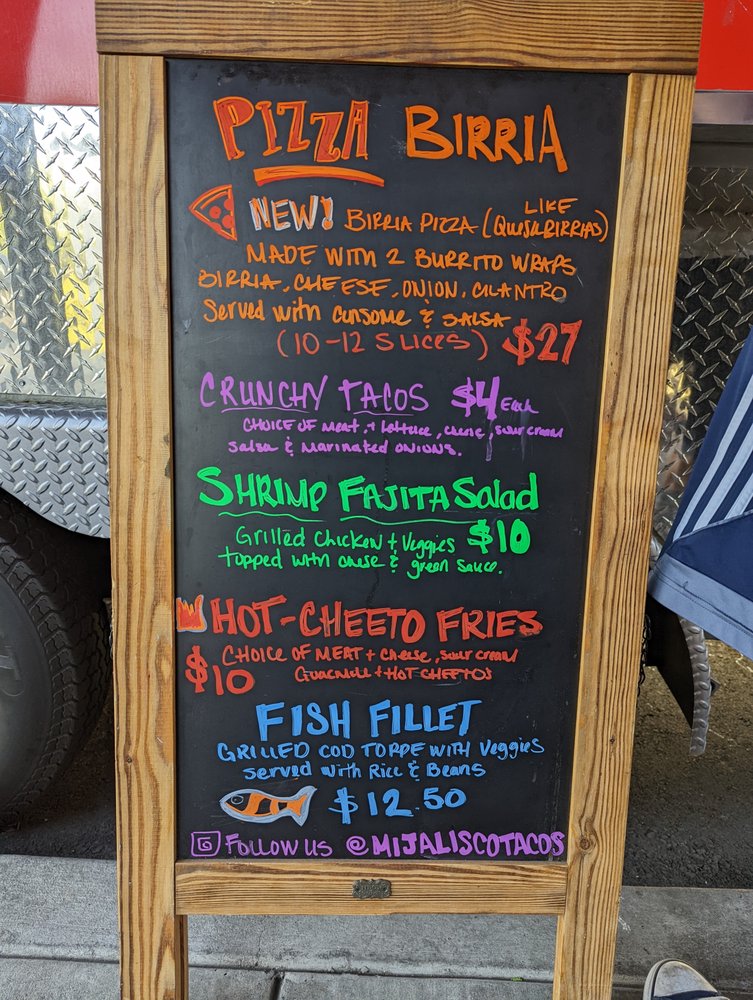 PIZZA BIRRIA
NEW! BIRRIA PIZZA (LIKE QUESABIRRIAS)
MADE WITH 2 BURRITO WRAPS
BIRRIA, CHEESE, ONION, CILANTRO
Served with consome & SALSA
(10-12 SLICES) $27
CRUNCHY TACOS $4 Each
CHOICE OF Meat + Lettuce, cheese, sour cream
Salsa & Marinated onions.
SHRIMP FAJITA Salad
Grilled Chicken + Veggies $10
topped with chese & green sauce.
HOT-CHEETO FRIES
$10 CHOICE OF MEAT + cheese, sour cream
Guacmole + HOT CHEETOS
FISH FILLET
GRILLED COD TOPPE WITH Veggies
served with Rice & Beans
$12.50
Follow us @MIJALISCOTACOS